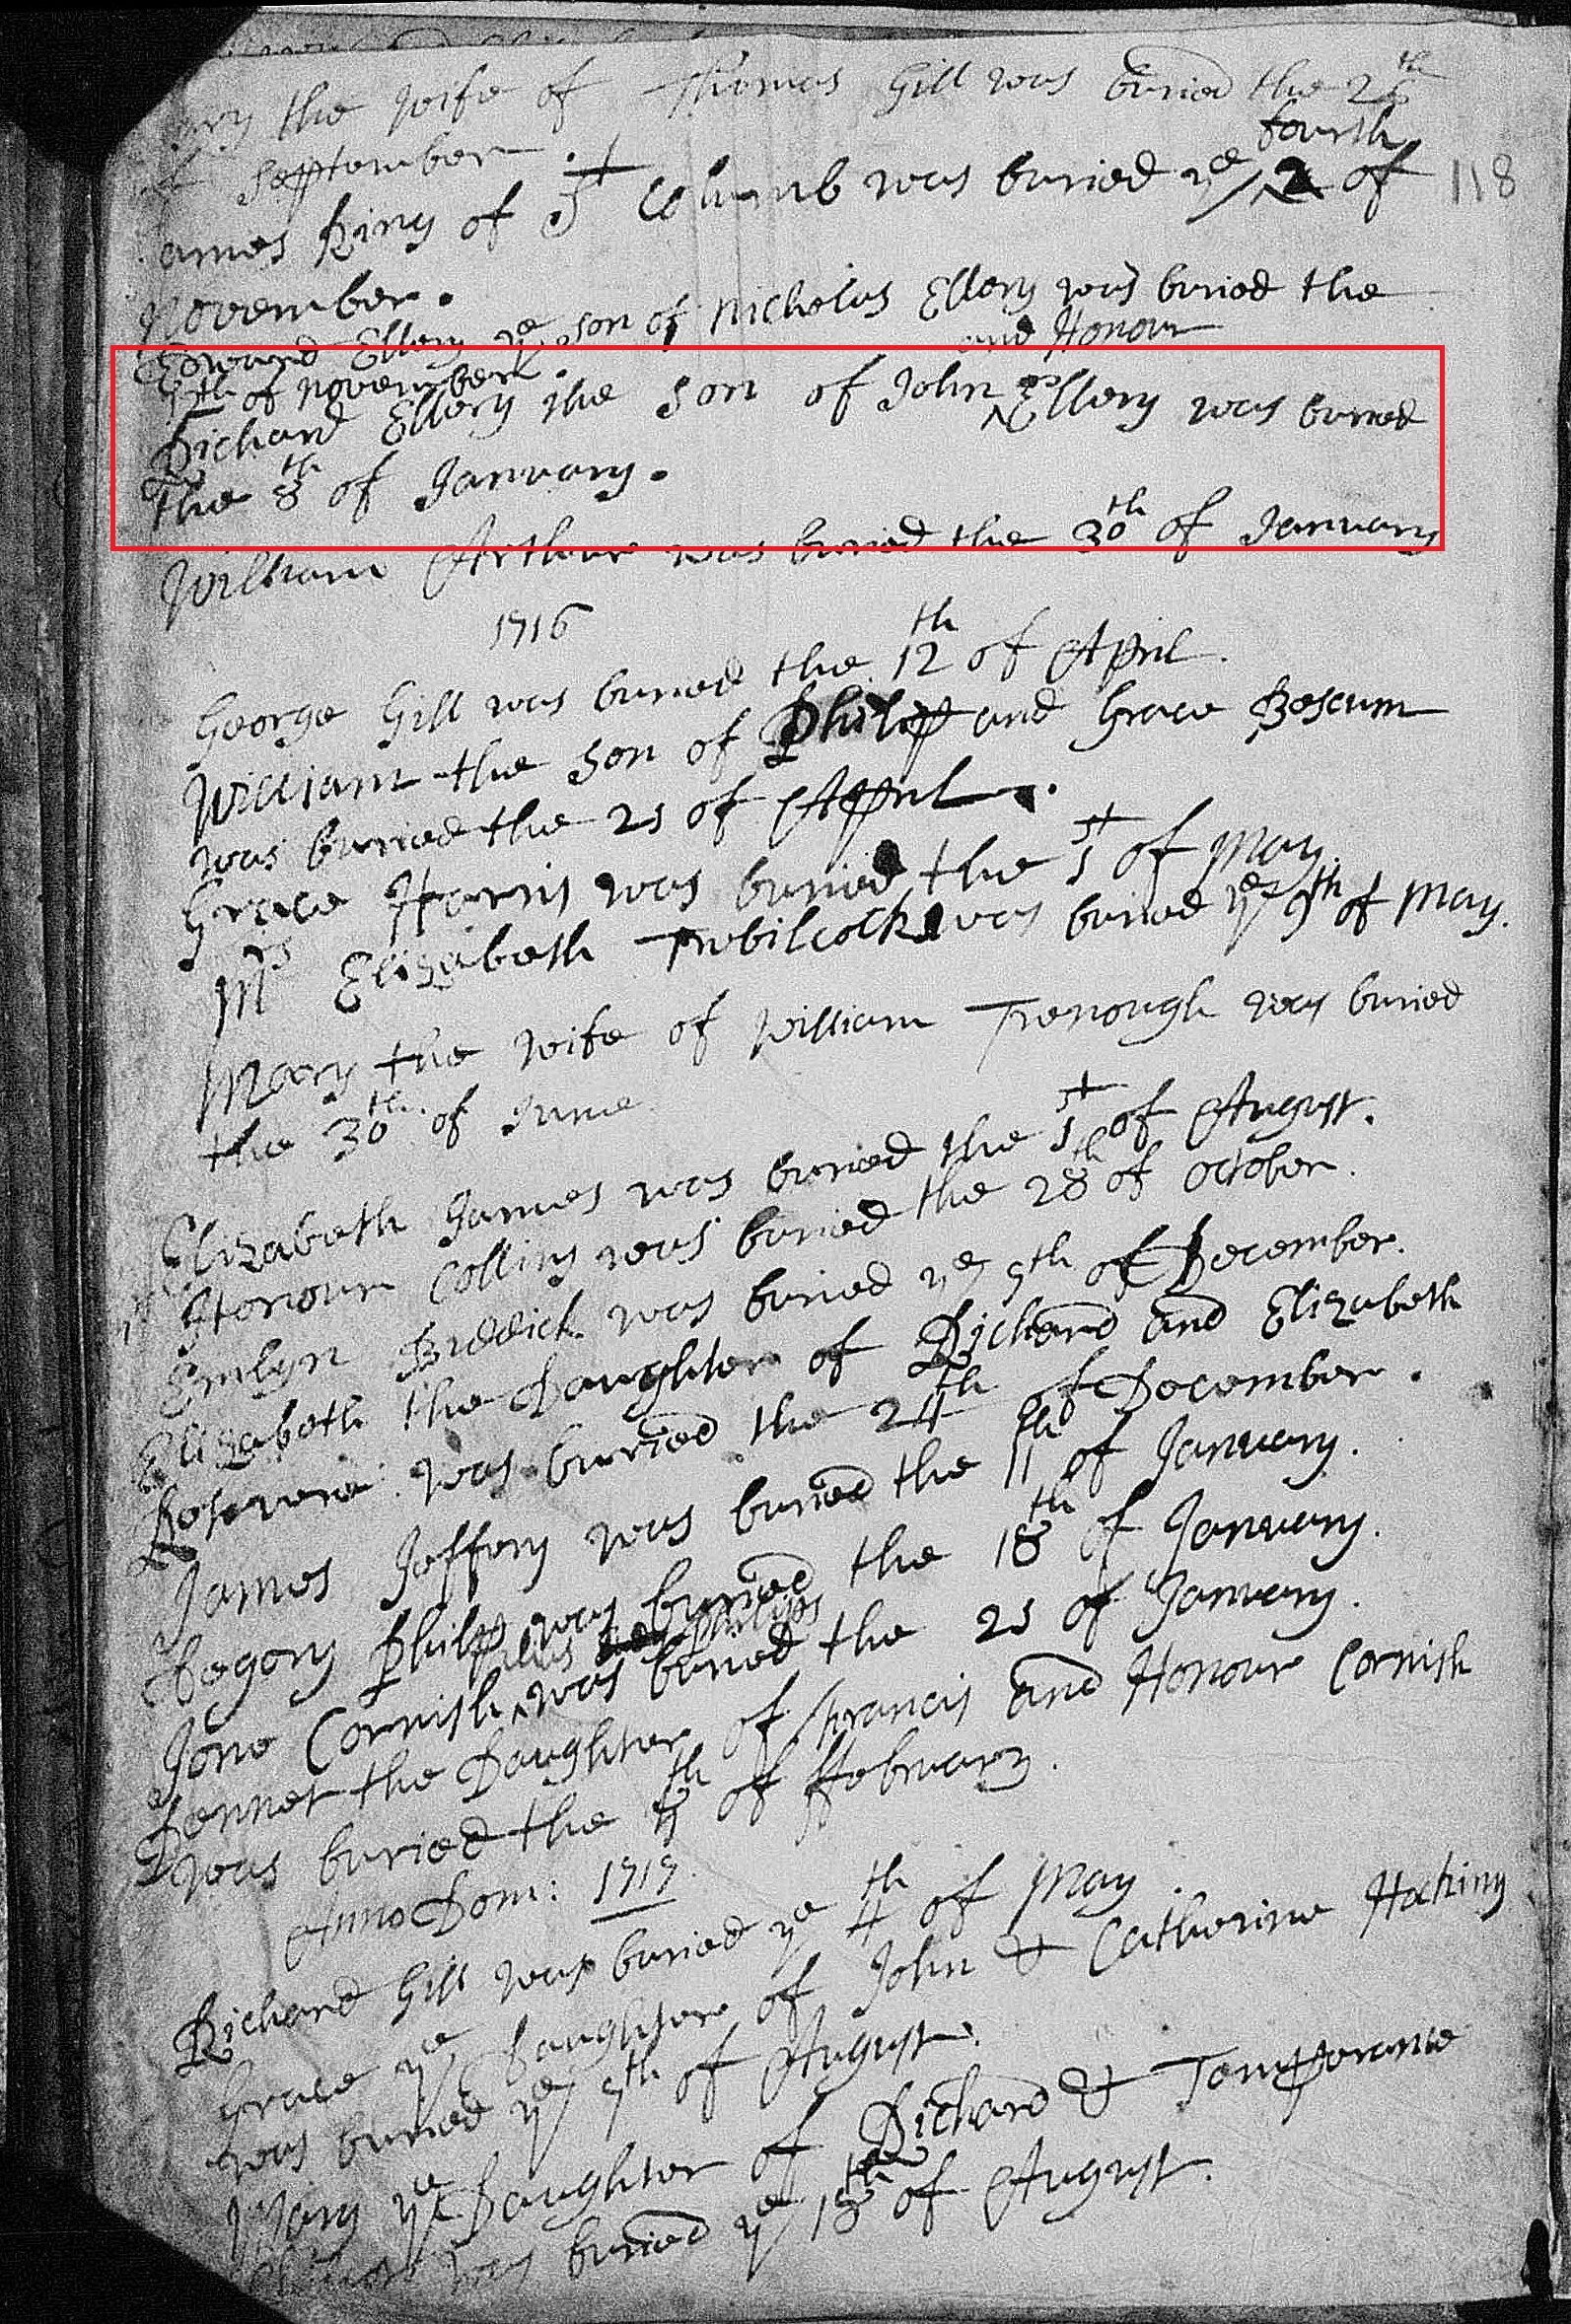 the wife of Thomas Gill was buried the 26th
of September.
fourth
ames King of St Columb was buried ye 2 of
118
November.
Edward Ellery ye son of Nicholas Ellery was buried the
5th of November.
and Honour
Richard Ellery the son of John Ellery was buried
the 8th of January.
William Arthur was buried the 30th of January
1716
George Gill was buried the 12th of April.
William the son of Philip and Grace Boscum
was buried the 21 of April.
Grace Harris was buried the 1st of May.
Mrs Elizabeth Trebilcock was buried ye 9th of May.
Mary the wife of William Trenough was buried
the 30th of June.
Elizabeth James was buried the 1st of August.
Honour Collins was buried the 28th of October.
Emlyn Biddick was buried ye 9th of December.
Elizabeth the Daughter of Richard and Elizabeth
was buried the 24th of December.
James Jeffery was buried the 11th of January.
Philips was buried the 18th of January.
alias Philips
Jone Cornish was buried the 21 of January.
Jennet the Daughter of Francis and Honour Cornish
was buried the of ffebruary.
Anno Dom: 1717
Richard Gill was buried ye 4th of May.
Grace ye Daughter of John & Catherine Hocking
was buried ye 9th of August.
Mary ye Daughter of Richard & Temperance
was buried ye 18th of August.